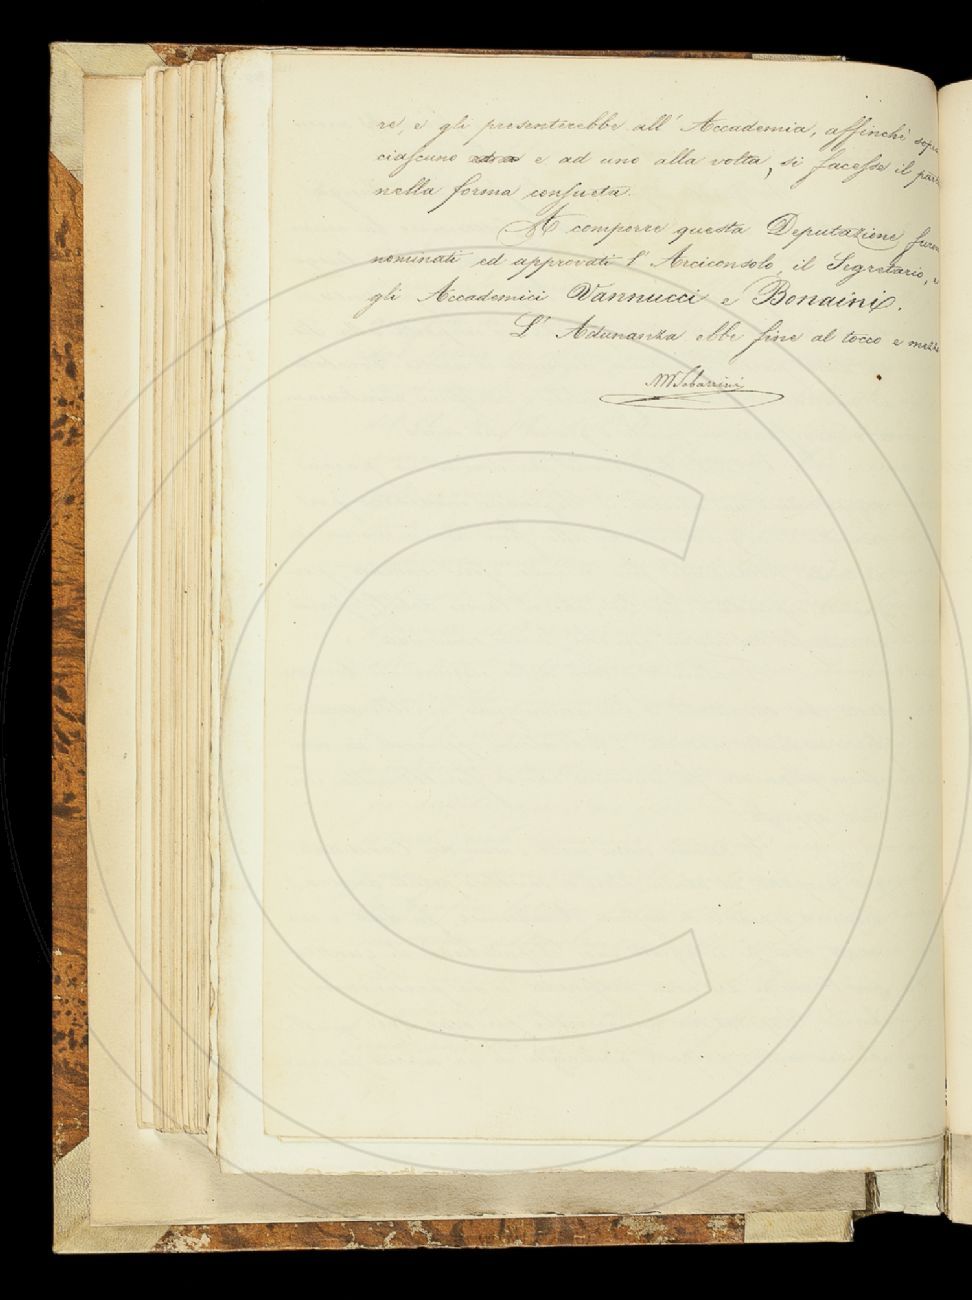 re, e gli presenterebbe all' Accademia, affinchè sopra
ciascuno e ad uno alla volta, si facesse il
nella forma consueta.
A comporre questa Deputazione furon
nominati ed approvati l' Arciconsolo, il Segretario, e
gli Accademici Vannucci e Bonaini.
L' Adunanza ebbe fine al tocco e mezzo
M Tabarrini